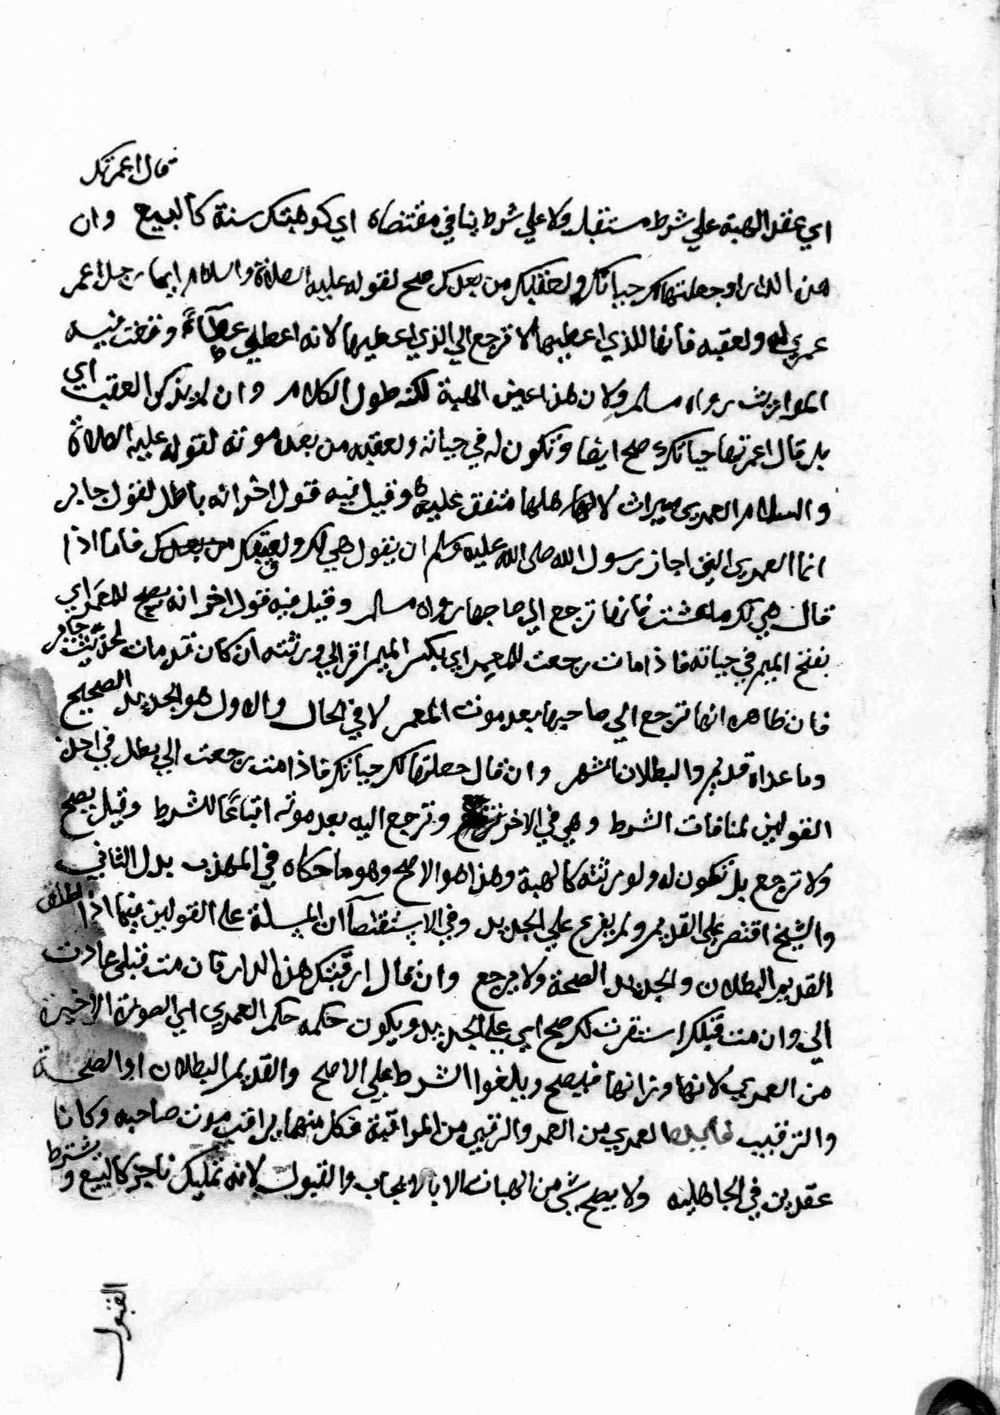 قال اعمرتك
اي عقد الهبة علي شرط مستقبل ولا علي شرط ينافي مقتضاه اي كوهبتك سنة كالبيع وان
هذه الدار او جعلتها لك حياتك ولعقبك من بعدك صح لقوله عليه الصلاة والسلام ايما رجل اعمر
عمري له ولعقبه فانها للذي اعطيها لا ترجع الي الذي اعطيها لانه اعطي عطآءً وقعت فيه
المواريث رواه مسلم ولان هذا عين الهبة لكنه طول الكلام وان لم يذكر العقب اي
بل قال اعمرتها حياتك صح ايضا وتكون له في حياته ولعقبه من بعد موته لقوله عليه الصلاة
والسلام العمري ميراث لاهلها متفق عليه وقيل فيه قول اخر انه باطل لقول جابر
انما العمري التي اجاز رسول الله صلى الله عليه وسلم ان يقول هي لك ولعقبك من بعدك فاما اذا
قال هي لك ما عشت فانها ترجع الي صاحبها رواه مسلم وقيل فيه قول اخر انه يصح للمعمَر اي
بفتح الميم في حياته فاذا مات رجعت للمعمِر اي بكسر الميم او الي ورثته ان كان قد مات لحديث جابر
فان ظاهره انها ترجع الي صاحبها بعد موت المعمر لا في الحال والاول هو الجديد الصحيح
وما عداه قديم والبطلان اشهر وان قال جعلتها لك حياتك فاذا مت رجعت الي بطل في احد
القولين لمنافات الشرط وهي في الاخر وترجع اليه بعد موته اتباعًا للشرط وقيل يصح
ولا ترجع بل تكون له ولورثته كالهبة وهذا هو الاصح وهو ما حكاه في المهذب بدل الثاني
والشيخ اقتصر علي القديم ولم يفرع علي الجديد وفي الاستقصآ ان المسلة علي القولين فيما اذا اطلق
القديم البطلان والجديد الصحة ولا يرجع وان قال ارقبتك هذه الدار فان مت قبلي عادت
الي وان مت قبلك استقرت لك صح اي علي الجديد ويكون حكمه حكم العمري اي الصورة الاخيرة
من العمري لانها وزانها فيصح ويلغوا الشرط علي الاصح والقديم البطلان او الصحة
والترقيب العمري من العمر والرقبي من المراقبة فكل منهما يراقب موت صاحبه وكانا
عقدين في الجاهلية ولا يصح شي من الهبات الا بالايجاب والقبول لانه تمليك ناجز كالبيع و يشترط
القبول